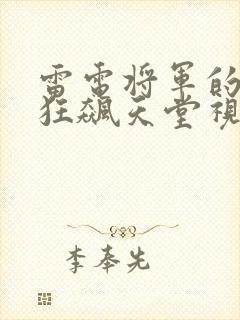 雷電将軍的
狂飆天堂視
李奉先